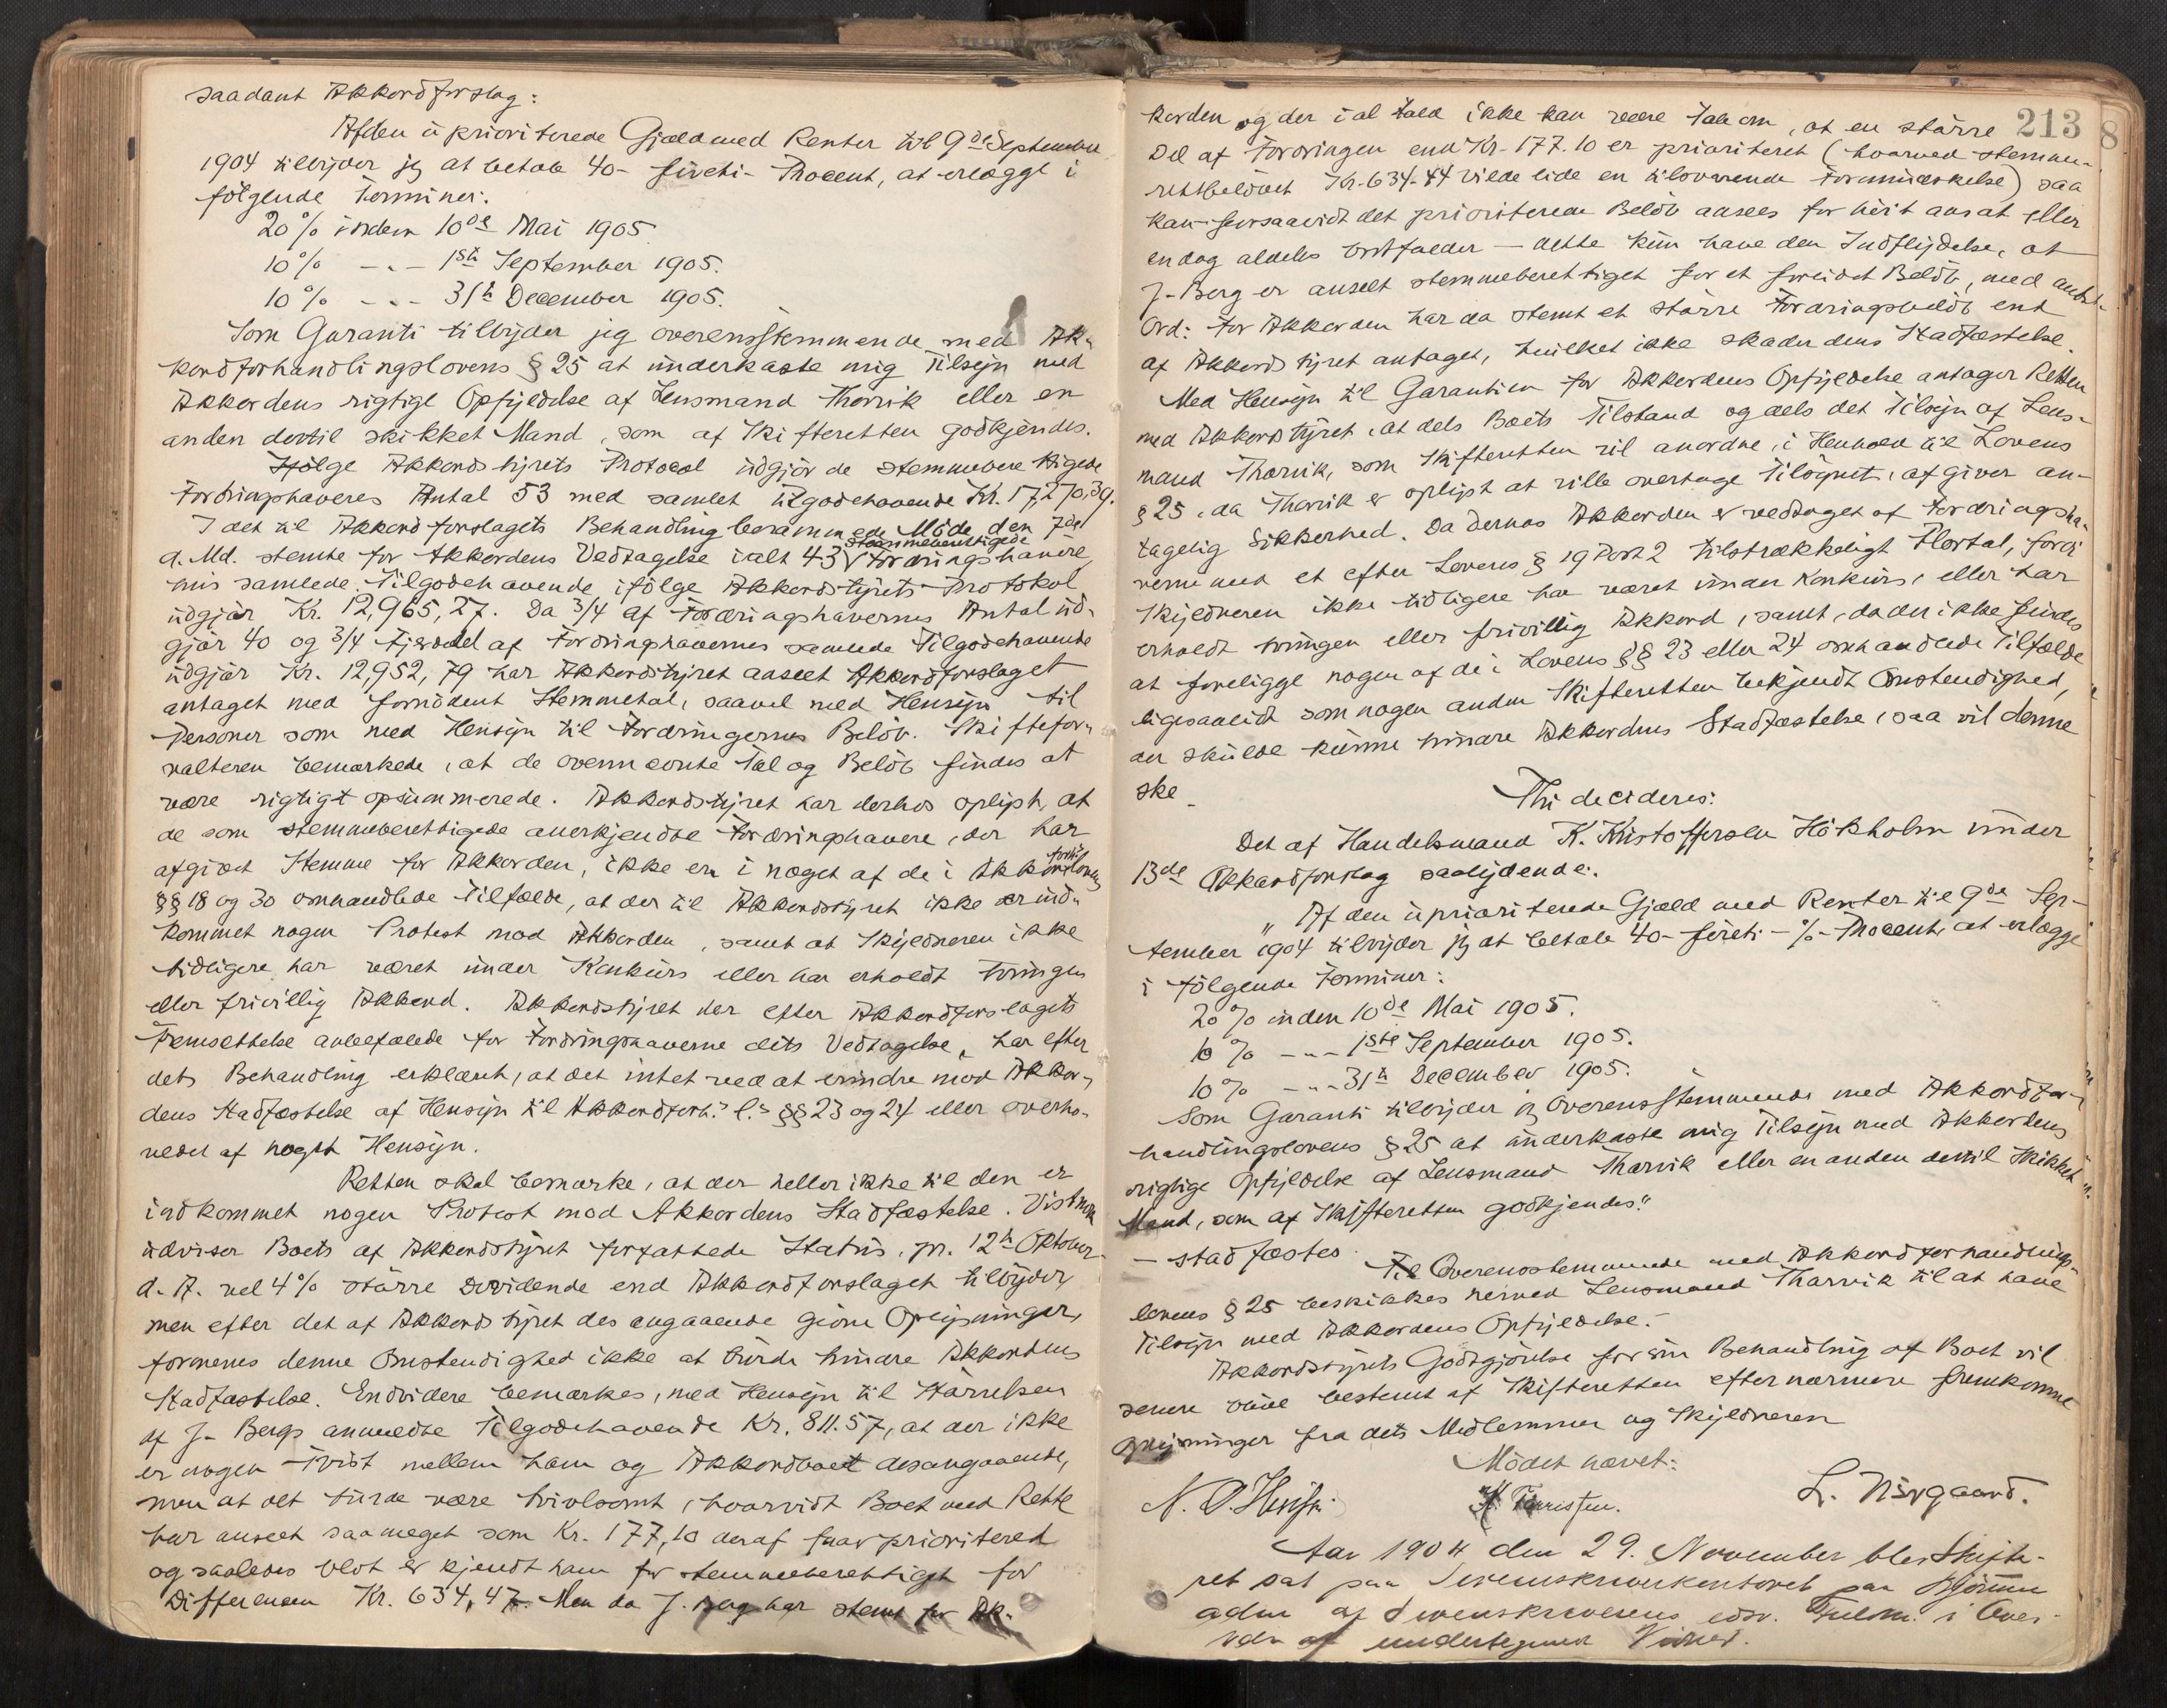 saadant Akkordforslag:
Af den upriviterede Gjæld med Renter til 9de September
1904 tilbyder jeg at betale 40- fireti- Procent, at erlægge i
følgende Terminer:
20 % inden 10de Mai 1905
10 % -"- 1ste September 1905.
10 % -"- 31te December 1905.
Som Garanti tilbyder jeg overensstemmende med Ak-
kordforhandlingslovens § 25 at underkaste mig Tilsyn med
Akkordens rigtige Opfyldelse af Lensmand Thorvik eller en
anden dertil skikket Mand, som af Skifteretten godkjendes.
Ifølge Akkordstyrets Protocol udgjør de stemmeberettigede
Fordringshaveres Antal 53 med samlet tilgodehavende Kr. 17,270,39.
I det til Akkordforslagets Behandling berammede Møde den 7de
d. Md. stemte for Akkordens Vedtagelse ialt 43 stemmeberettigede Fordringshavere,
hvis samlede Tilgodehavende ifølge Akkordstyrets Protokol
udgjør Kr. 12,965,27. Da 3/4 af Fordringshavernes Antal ud-
gjør 40 og 3/4 Fjerdedel af Fordringshavernes samlede Tilgodehavende
udgjør Kr. 12,952,79 har Akkordstyret anseet Akkordforslaget
antaget med fornødent Stemmetal, saavel med Hensyn til
Personer som med Hensyn til Fordringernes Beløb. Skiftefor-
valteren bemærkede, at de ovennævnte Tal og Beløb findes at
være rigtigt opsummerede. Akkordstyret har derhos oplyst, at
de som stemmeberettigede anerkjendte Fordringshavere, der har
afgivet Stemme for Akkorden, ikke er i noget af de i Akkordforh.lovens
§§ 18 og 30 omhandlede Tilfælde, at der til Akkordstyret ikke er ind-
kommet nogen Protest mod Akkorden, samt at Skyldneren ikke
tidligere har været under Konkurs eller har erholdt tvungen
eller frivillig Akkord. Akkordstyret der efter Akkordforslagets
Fremsettelse anbefalede for Fordringshaverne dets Vedtagelse, har efter
dets Behandling erklæret, at det intet ved at erindre mod Akkor-
dens Stadfæstelse af Hensyn til Akkordforh.s l.s §§ 23 og 24 eller overho-
vedet af noget Hensyn.
Retten skal bemærke, at der heller ikke til den er
indkommet nogen Protest mod Akkordens Stadfæstelse. Vistnok
udviser Boets af Akkordstyret forfattede Status, pr. 12te Oktober
d. A. vel 4% større Dividende end Akkordforslaget tilbyder,
men efter det af Akkordstyret desangaaende givne Oplysninger,
formenes denne Omstendighed ikke at burde hindre Akkordens
Stadfæstelse. Endvidere bemærkes, med Hensyn til Størrelsen
af J. Bergs anmeldte Tilgodehavende Kr. 811.57, at der ikke
er nogen Tvist mellem ham og Akkordboet desangaaende,
men at det turde være tvivlsomt, hvorvidt Boet med Rette
har anseet saameget som Kr. 177,10 deraf for prioriteret
og saaledes blot er kjendt ham for stemmeberettiget for
Differencen Kr. 634,47. Men da J. Berg har stemt for Ak-
213
8
korden og der i al Fald ikke kan være Tale om, at en større
Del af Fordringen end Kr. 177.10 er prioriteret (hvorved stemme-
retsbeløbet Kr. 634.44 vilde lide en tilsvarende Formindskelse) saa
kan - forsaavidt det prioriterede Beløb ansees for høit ansat eller
endog aldeles bortfalder - dette kun have den Indflydelse, at
J. Berg er anseet stemmeberettiget for et forlidet Beløb, med andre
Ord: for Akkorden har da stemt et større Fordringsbeløb end
af Akkordstyret antaget, hvilket ikke skader dens Stadfæstelse.
Med Hensyn til Garantien for Akkordens Opfyldelse antager Retten
med Akkordstyret, at dels Boets Tilstand og dels det Tilsyn af Lens-
mand Thorvik, som Skifteretten vil anordne, i Henhold til Lovens
§ 25, da Thorvik er oplyst at ville overtage Tilsynet, afgiver an-
tagelig Sikkerhed. Da dernæs Akkorden er vedtaget af Fordringsha-
verne med et efter Lovens § 19 Post 2 tilstrækkeligt Flertal, fordi
Skyldneren ikke tidligere har været under Konkurs, eller har
erholdt tvungen eller frivillig Akkord, samt, da der ikke findes
at foreligge nogen af de i Lovens §§ 23 eller 24 omhandlede Tilfælde
ligesaalidt som nogen anden Skifteretten bekjendt Omstendighed,
der skulde kunne hindre Akkordens Stadfæstelse, saa vil denne
ske -
Thi decideres:
Det af Handelsmand K. Kristoffersen Hökholm under
13de Akkordforslag saalydende:
"Af den upriviterede Gjæld med Renter til 9de Sep-
tember 1904 tilbyder jeg at betale 40- fireti- %- Procent, at erlægge
i følgende Terminer:
20 % inden 10de Mai 1905.
10 % -"- 1ste September 1905.
10 % -"- 31te December 1905.
Som Garanti tilbyder jeg Overensstemmende med Akkordfor-
handlingslovens § 25 at underkaste mig Tilsyn med Akkordens
rigtige Opfyldelse af Lensmand Thorvik eller en anden dertil skikket
Mand, som af Skifteretten godkjendes."
- stadfæstes.
Overensstemmende med Akkordforhandlings-
lovens § 25 beskikkes herved Lensmand Thorvik til at have
Tilsyn med Akkordens Opfyldelse.
Akkordstyrets Godtgjørelse for sin Behandling af Boet vil
senere blive bestemt af Skifteretten efter nærmere fremkomne
Oplysninger fra dets Medlemmer og Skyldneren
Mödet hævet:
L. Nörgaard.
Aar 1904 den 29. November blev Skifte-
ret sat paa Sorenskriverkontoret paa
af Sorenskriverens edsv. Fuldm. i Over-
vær af undertegnede Vidner.